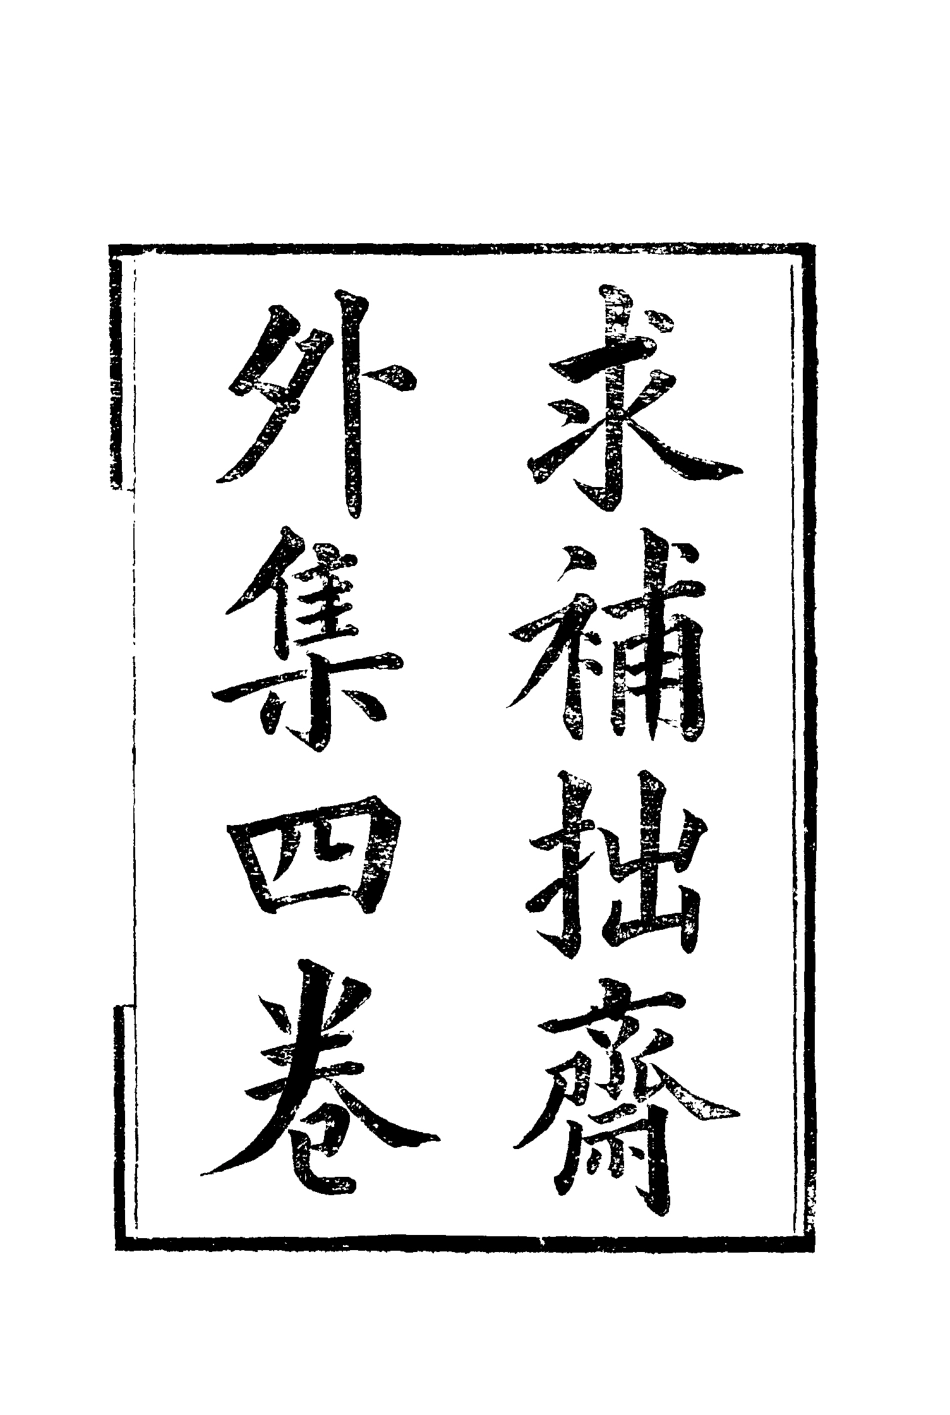 求補拙齋
外集四卷